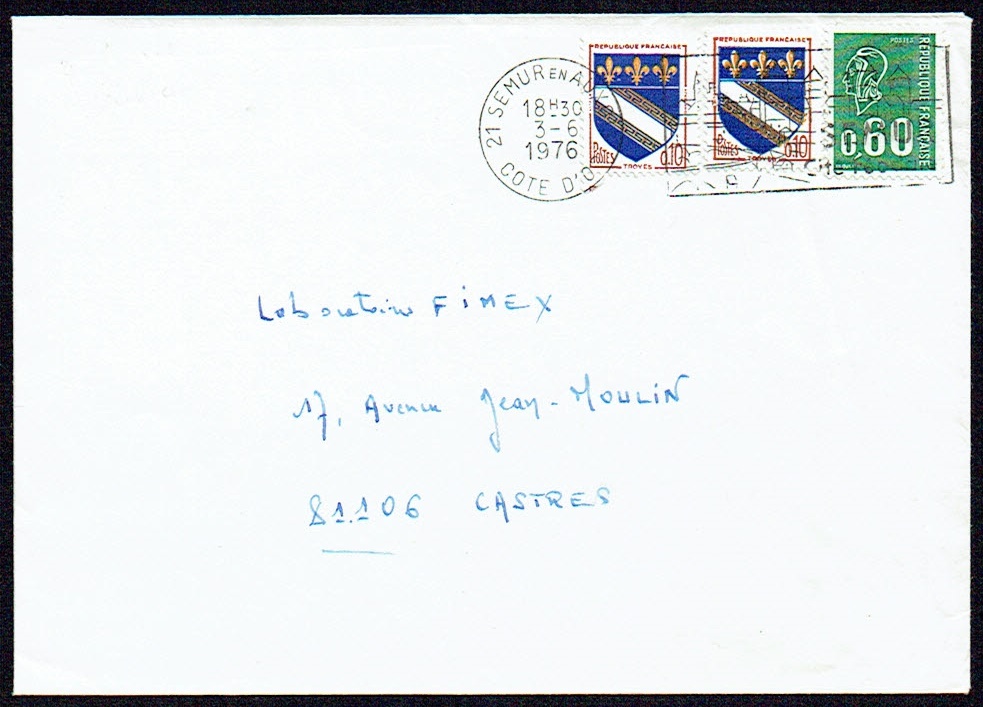 21 SEMUR EN AUX
18H30
3-6
1976
COTE D'O
REPUBLIQUE FRANÇAISE
POSTES
0,10
TROYES
REPUBLIQUE FRANÇAISE
POSTES
0,10
TROYES
POSTES
REPUBLIQUE FRANÇAISE
0,60
Laboratoire FiMEX
17, Avenue Jean-MOULiN
81.106 CASTRES